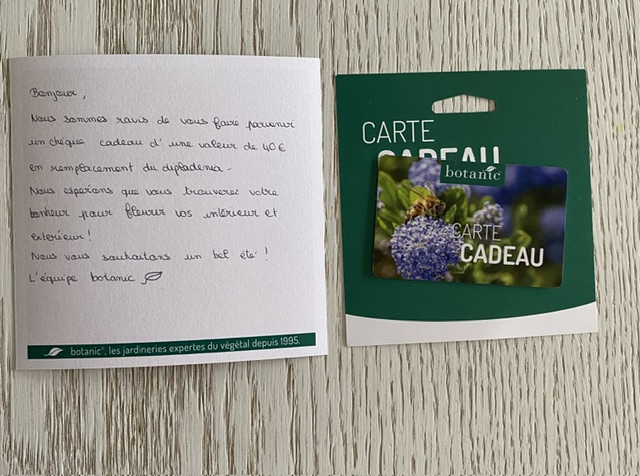 Bonjour,
Nous sommes ravis de vous faire parvenir
un chèque cadeau d'une valeur de 40€
en remplacement du dipladenia.
Nous espérons que vous trouverez votre
bonheur pour fleurir vos intérieur et
extérieur!
Nous vous souhaitons un bel été!
L'équipe botanic
botanic®, les jardineries expertes du végétal depuis 1995.
CARTE
CADEAU
botanic®
CARTE
CADEAU